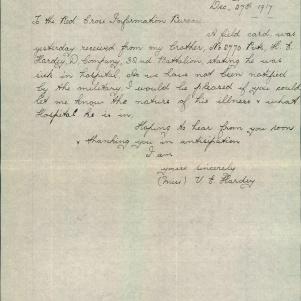 Dec. 27th 1917
To the Red Cross Information Bureau
A field card was
yesterday received from my brother, No 2770 Pvte, H. E.
Hardey, D Company, 32nd Battalion, stating he was
sick in hospital. As we have not been notified
by the military I would be pleased if you could
let me know the nature of his illness & what
Hospital he is in.
Hoping to hear from you soon
& thanking you in anticipation
I am
yours sincerely
(Miss) V. E. Hardey